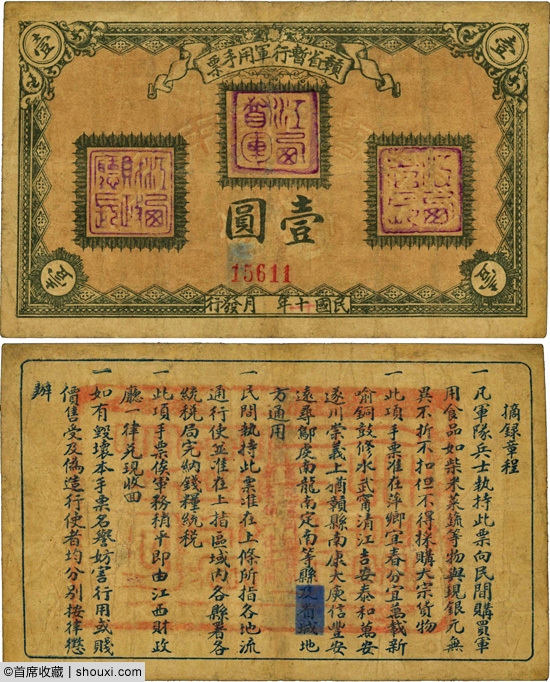 壹
壹
贛省暫行軍用手票
江西督軍
壹圓
15611
民國十年 月發行
摘錄章程
一凡軍隊兵士執持此票向民間購買軍
用食品如柴米菜蔬等物與現銀元無
異不折不扣但不得採購大宗貨物
一此項手票准在萍鄉宜春分宜萬載新
喻銅鼓修水武甯清江吉安泰和萬安
遂川崇義上猶贛縣南康大庾信豐安
遠尋鄔虔南龍南定南等縣及省城地
方通用
一民間執持此票准在上條所指各地流
通行使並准在上指區域內各縣署各
統稅局完納錢糧統稅
一此項手票俟軍務稍平即由江西財政
廳一律兌現收回
一如有毀壞本手票名譽妨害行用或賤
價售受及偽造行使者均分別按律懲
辦
©首席收藏 | shouxi.com